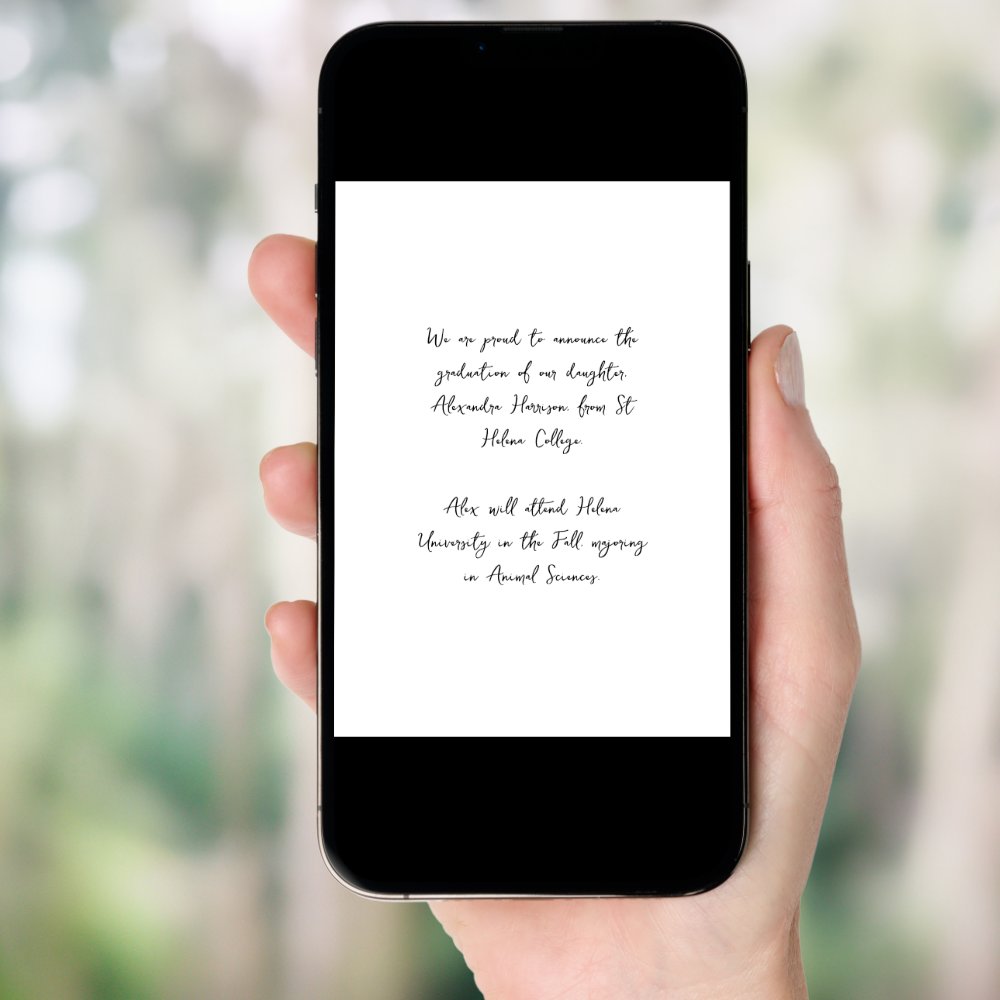 We are proud to announce the
graduation of our daughter,
Alexandra Harrison, from St
Helena College.
Alex will attend Helena
University in the Fall, majoring
in Animal Sciences.